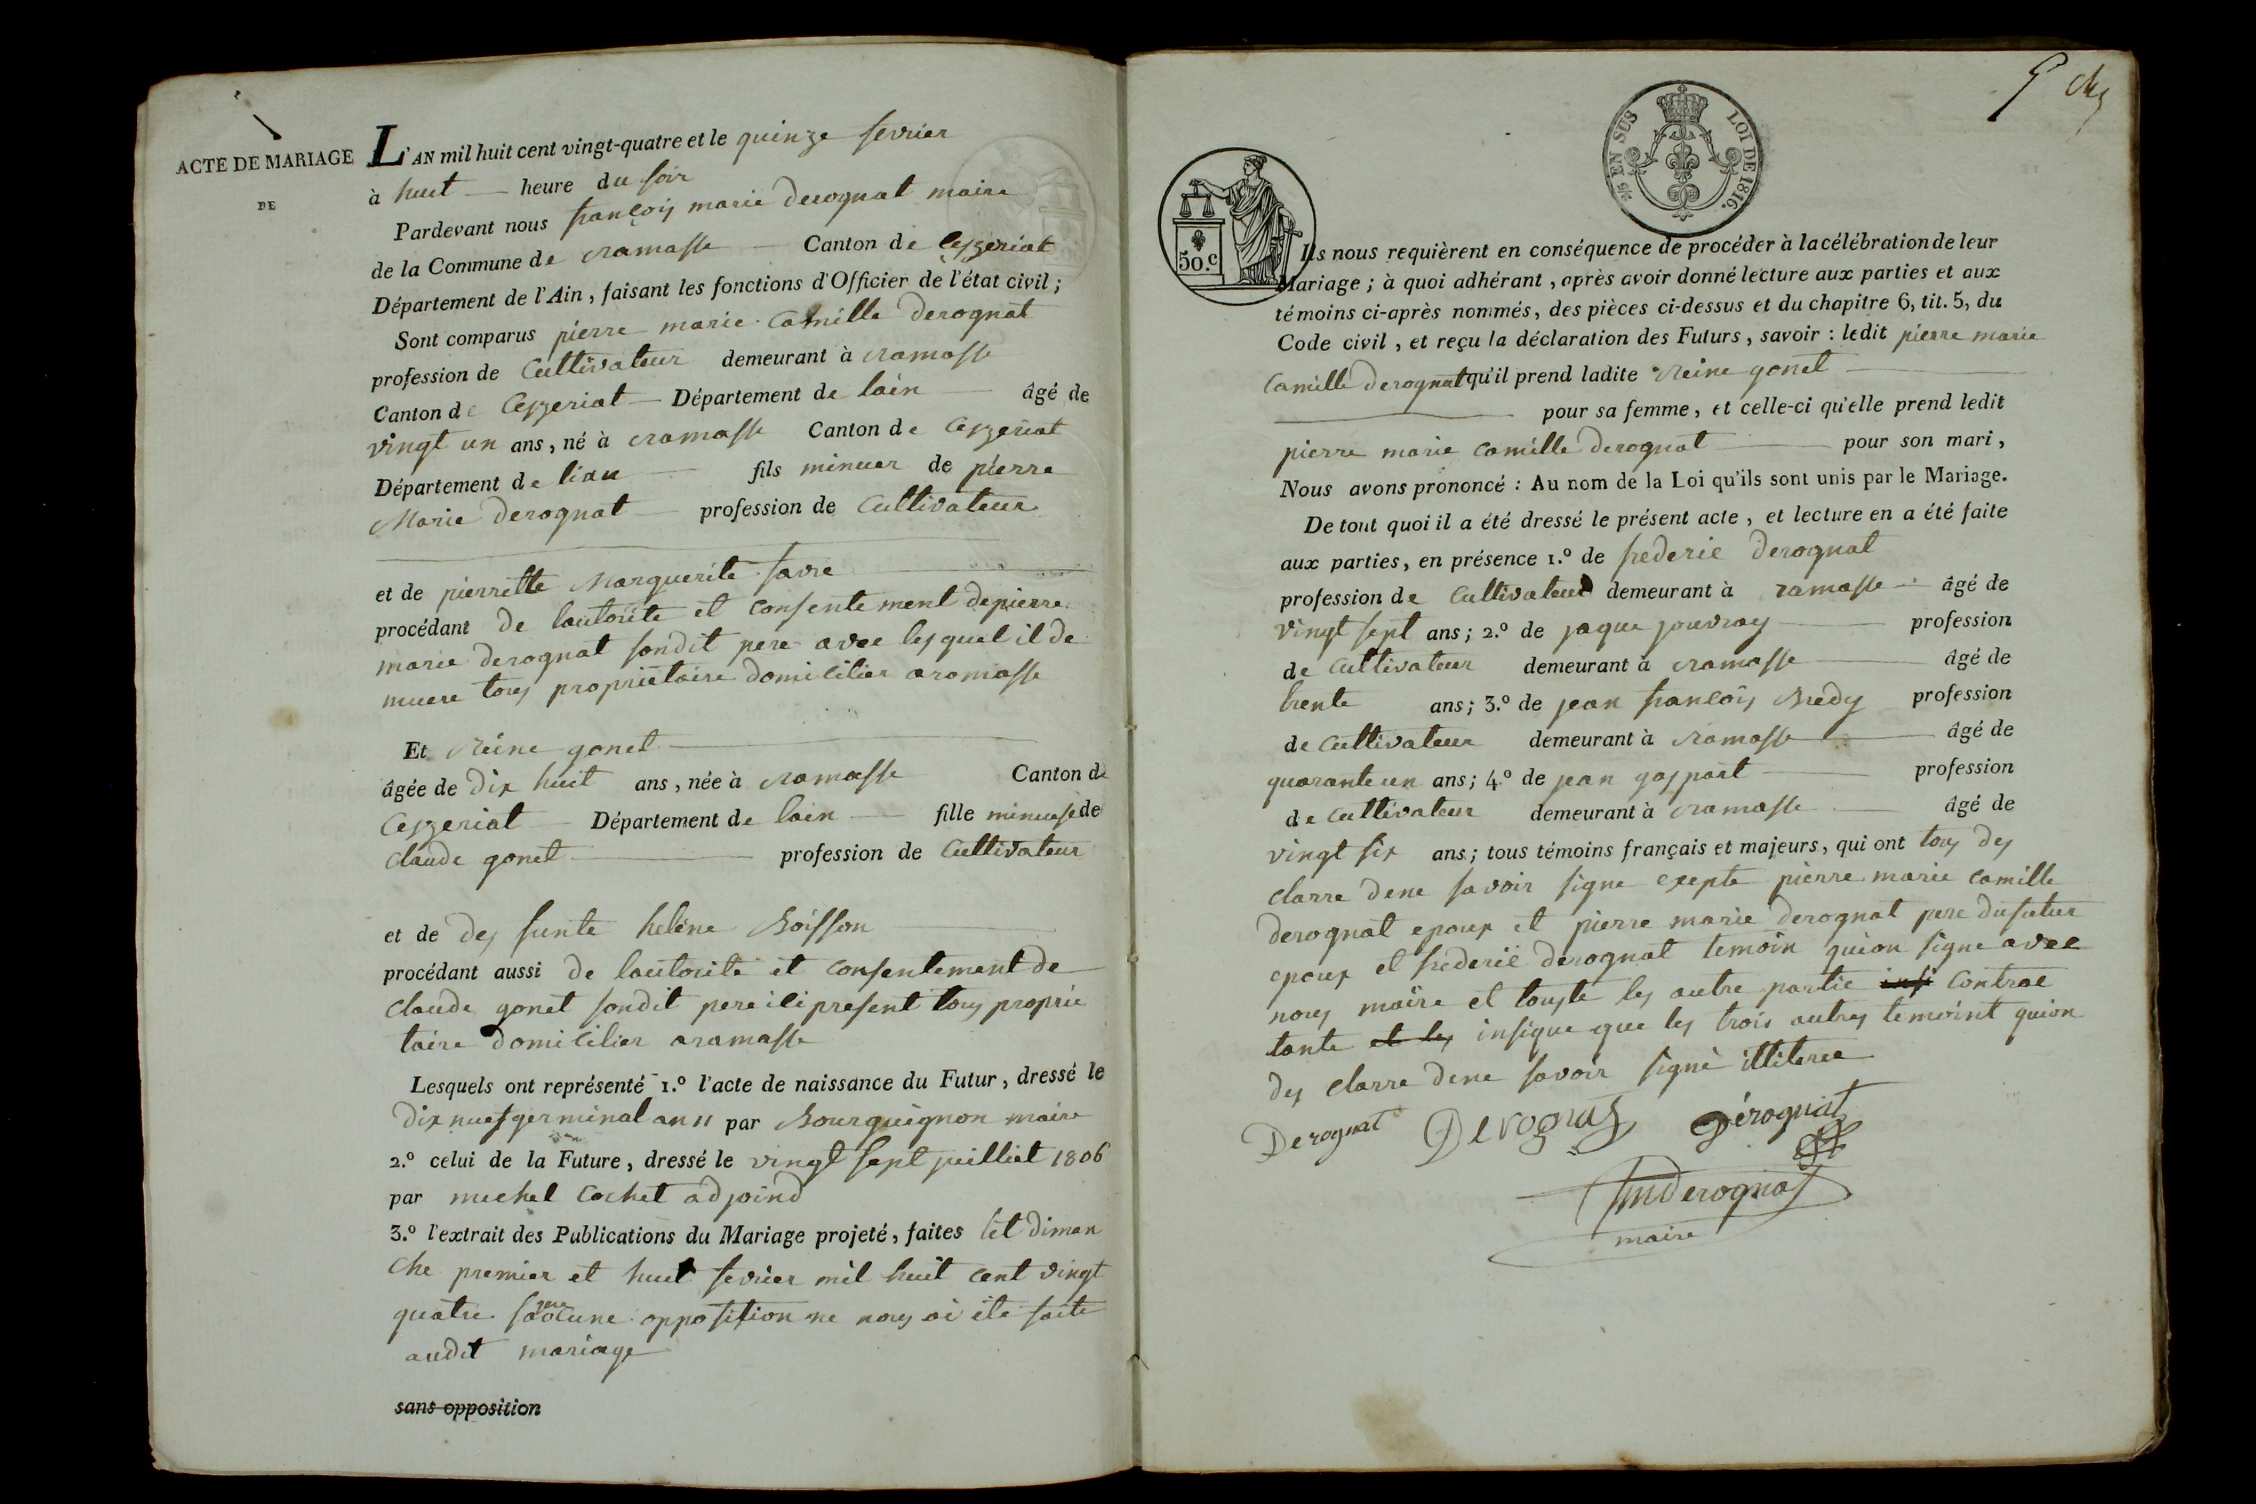 ACTE DE MARIAGE
DE
L'AN mil huit cent vingt-quatre et le quinze fevrier
à huit heure du soir
Pardevant nous françois marie derognat maire
de la Commune de ramasse Canton de Ceyzeriat
Département de l'Ain, faisant les fonctions d'Officier de l'état civil;
Sont comparus pierre marie camille derognat
profession de Cultivateur demeurant à ramasse
Canton de Ceyzeriat Département de lain âgé de
vingt un ans, né à ramasse Canton de Ceyzeriat
Département de fils mineur de pierre
Marie derognat profession de Cultivateur
et de pierrette Marguerite favre
procédant de lautorite et consentement de pierre
marie derognat sondit pere avec lesquel il de
muere tous proprietaire domicilier aramasse
Et Reine gonet
âgée de dix huit ans, née à ramasse Canton de
Ceyzeriat Département de lain fille mineuse de
claude gonet profession de Cultivateur
et de des funte heléne Boisson
procédant aussi de lautorite et consentement de
claude gonet sondit pere ici present tous proprie
taire domicilier aramasse
Lesquels ont représenté 1.° l'acte de naissance du Futur, dressé le
dix nuef germinal an 11 par Bourguignon maire
2.° celui de la Future, dressé le vingt sept juilliet 1806
par michel Cochet adjoind
3.° l'extrait des Publications du Mariage projeté, faites let diman
che premier et huit fevrier mil huit cent vingt
quatre opposition ne nous ai ete faite
audit mariage
sans opposition
50.c
EN SUS LOI DE 1816.
Ils nous requièrent en conséquence de procéder à la célébration de leur
Mariage; à quoi adhérant, après avoir donné lecture aux parties et aux
témoins ci-après nommés, des pièces ci-dessus et du chapitre 6, tit. 5, du
Code civil, et reçu la déclaration des Futurs, savoir: ledit pierre marie
Camille derognat qu'il prend ladite Reine gonet
pour sa femme, et celle-ci qu'elle prend ledit
pierre marie camille derognat pour son mari,
Nous avons prononcé: Au nom de la Loi qu'ils sont unis par le Mariage.
De tout quoi il a été dressé le présent acte, et lecture en a été faite
aux parties, en présence 1.° de frederic derognat
profession de Cultivateur demeurant à ramasse âgé de
vingt sept ans; 2.° de jaque jouvray profession
de Cultivateur demeurant à ramasse âgé de
trente ans; 3.° de jean françois Bredy profession
de Cultivateur demeurant à ramasse âgé de
quarante un ans; 4.° de jean gaspart profession
de Cultivateur demeurant à ramasse âgé de
vingt six ans; tous témoins français et majeurs, qui ont tous des
clarre dene savoir signe exepte pierre marie camille
derognat epoux et pierre marie derognat pere du futur
epoux et frederic derognat temoin quion signe avec
nous maire et touste les autre partie insi contrac
tante et les insique que les trois autres temoint quion
des clarre dene savoir signé illiteree
Derognat Derognat Dérognat
fmderognat
maire